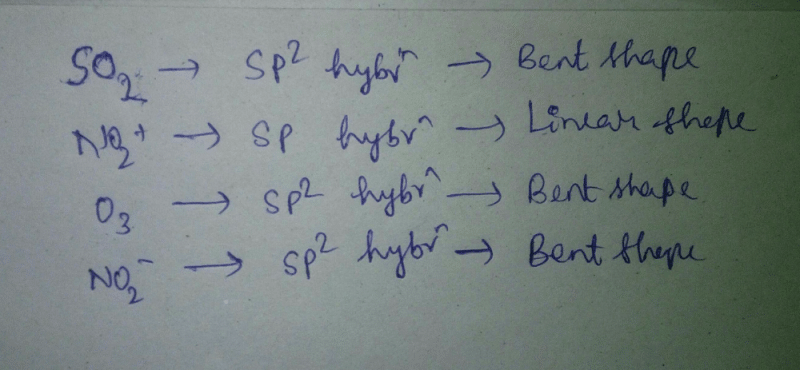 SO₂ → SP² hybrⁿ → Bent shape
NO₂⁺ → SP hybrⁿ → Linear shape
O₃ → SP² hybrⁿ → Bent shape
NO₂⁻ → SP² hybrⁿ → Bent shape